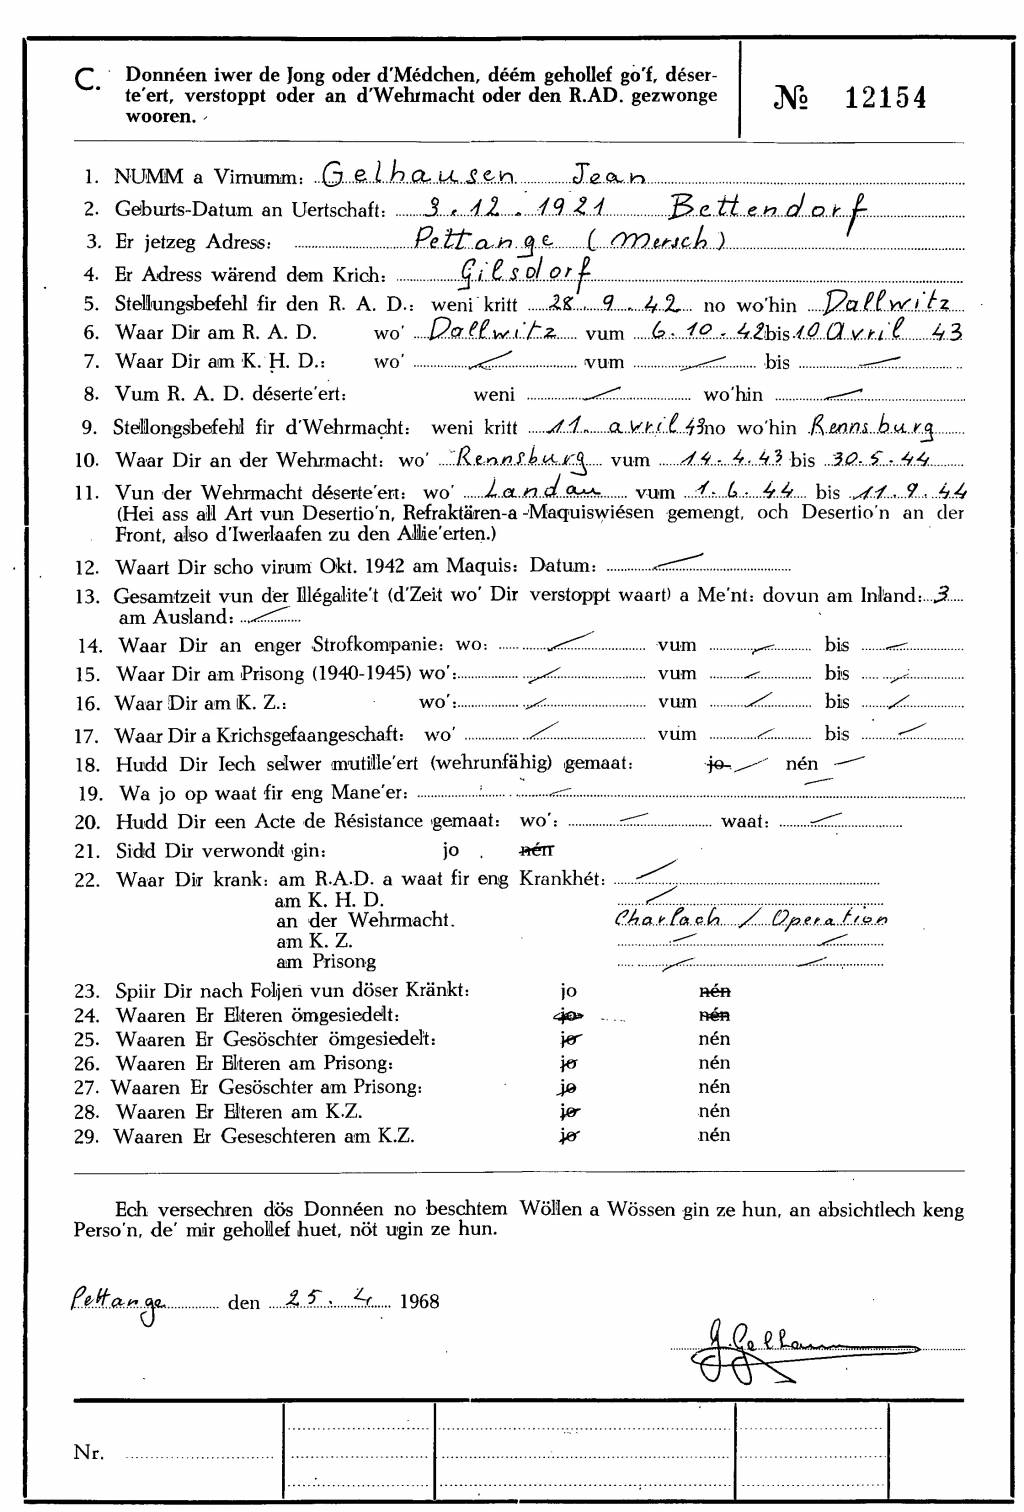 C. Donnéen iwer de Jong oder d'Médchen, déém gehollef go'f, déser-
te'ert, verstoppt oder an d'Wehrmacht oder den R.AD. gezwonge
wooren.
№ 12154
1. NUMM a Virnumm: Gelhausen Jean
2. Geburts-Datum an Uertschaft: 3.12.1921 Bettendorf
3. Er jetzeg Adress: Pettange (Mersch)
4. Er Adress wärend dem Krich: Gilsdorf
5. Stellungsbefehl fir den R. A. D.: weni kritt 28.9.42 no wo'hin Dallwitz
6. Waar Dir am R. A. D. wo' Dallwitz vum 6.10.42 bis 10 Avril 43
7. Waar Dir am K. H. D.: wo' vum bis
8. Vum R. A. D. déserte'ert: weni wo'hin
9. Stellongsbefehl fir d'Wehrmacht: weni kritt 11. avril 43 no wo'hin Rennsburg
10. Waar Dir an der Wehrmacht: wo' Rennsburg vum 14.4.43 bis 30.5.44
11. Vun der Wehrmacht déserte'ert: wo' Landau vum 1.6.44 bis 11.9.44
(Hei ass all Art vun Desertio'n, Refraktären-a -Maquiswiésen gemengt, och Desertio'n an der
Front, also d'Iwerlaafen zu den Allie'erten.)
12. Waart Dir scho virum Okt. 1942 am Maquis: Datum:
13. Gesamtzeit vun der Illégalite't (d'Zeit wo' Dir verstoppt waart) a Me'nt: dovun am Inland: 3
am Ausland:
14. Waar Dir an enger Strofkompanie: wo: vum bis
15. Waar Dir am Prisong (1940-1945) wo': vum bis
16. Waar Dir am K. Z.: wo': vum bis
17. Waar Dir a Krichsgefaangeschaft: wo' vum bis
18. Hudd Dir Iech selwer mutille'ert (wehrunfähig) gemaat: jo nén
19. Wa jo op waat fir eng Mane'er:
20. Hudd Dir een Acte de Résistance gemaat: wo': waat:
21. Sidd Dir verwondt gin: jo nén
22. Waar Dir krank: am R.A.D. a waat fir eng Krankhét:
am K. H. D.
an der Wehrmacht. Charlach / Operation
am K. Z.
am Prisong
23. Spiir Dir nach Foljen vun döser Kränkt: jo nén
24. Waaren Er Elteren ömgesiedelt: jo nén
25. Waaren Er Gesöschter ömgesiedelt: jo nén
26. Waaren Er Elteren am Prisong: jo nén
27. Waaren Er Gesöschter am Prisong: jo nén
28. Waaren Er Elteren am K.Z. jo nén
29. Waaren Er Geseschteren am K.Z. jo nén
Ech versechren dös Donnéen no beschtem Wöllen a Wössen gin ze hun, an absichtlech keng
Perso'n, de' mir gehollef huet, nöt ugin ze hun.
Pettange den 25.4 1968
Nr.